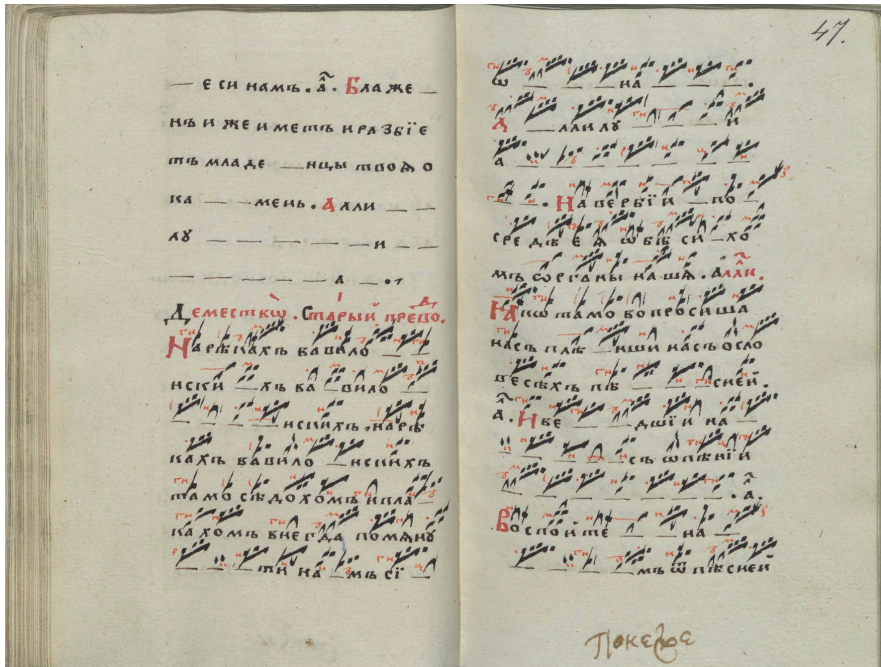 — е си намъ . а҃ . Блаже —
нъ иже иметъ и разбїе
тъ младе — нцы твоѧ о
ка — — мень . Алли — —
лѹ — — — — и — —
— — — — — а — .
Демество̀ . Старый прево д҃ .
На рѣкахъ вавило — —
нски — хъ ва — вило — —
— — — — нскихъ, на рѣ
кахъ вавило — нскихъ
тамо сѣдохомъ и пла —
кахомъ внегда помянѹ
— — — ти на — мъ сї — —
47.
ѿ — — на — — — .
А — лилѹ — — — и
а — — — — — — —
— — . На вербїи — по —
средѣ еѧ ѡбѣси — хо
мъ ѻрганы нашѧ . Алли҃ .
Якѡ тамо вопросиша
насъ плѣ — нши насъ ѻ сло
весѣхъ пѣ — — — сней .
а҃ . И ве — — дшїи на —
— — — — съ ѡ пѣнїи
— — — — — — — — . а҃ .
Воспойте — — на —
— — — — мъ ѿ пѣсней